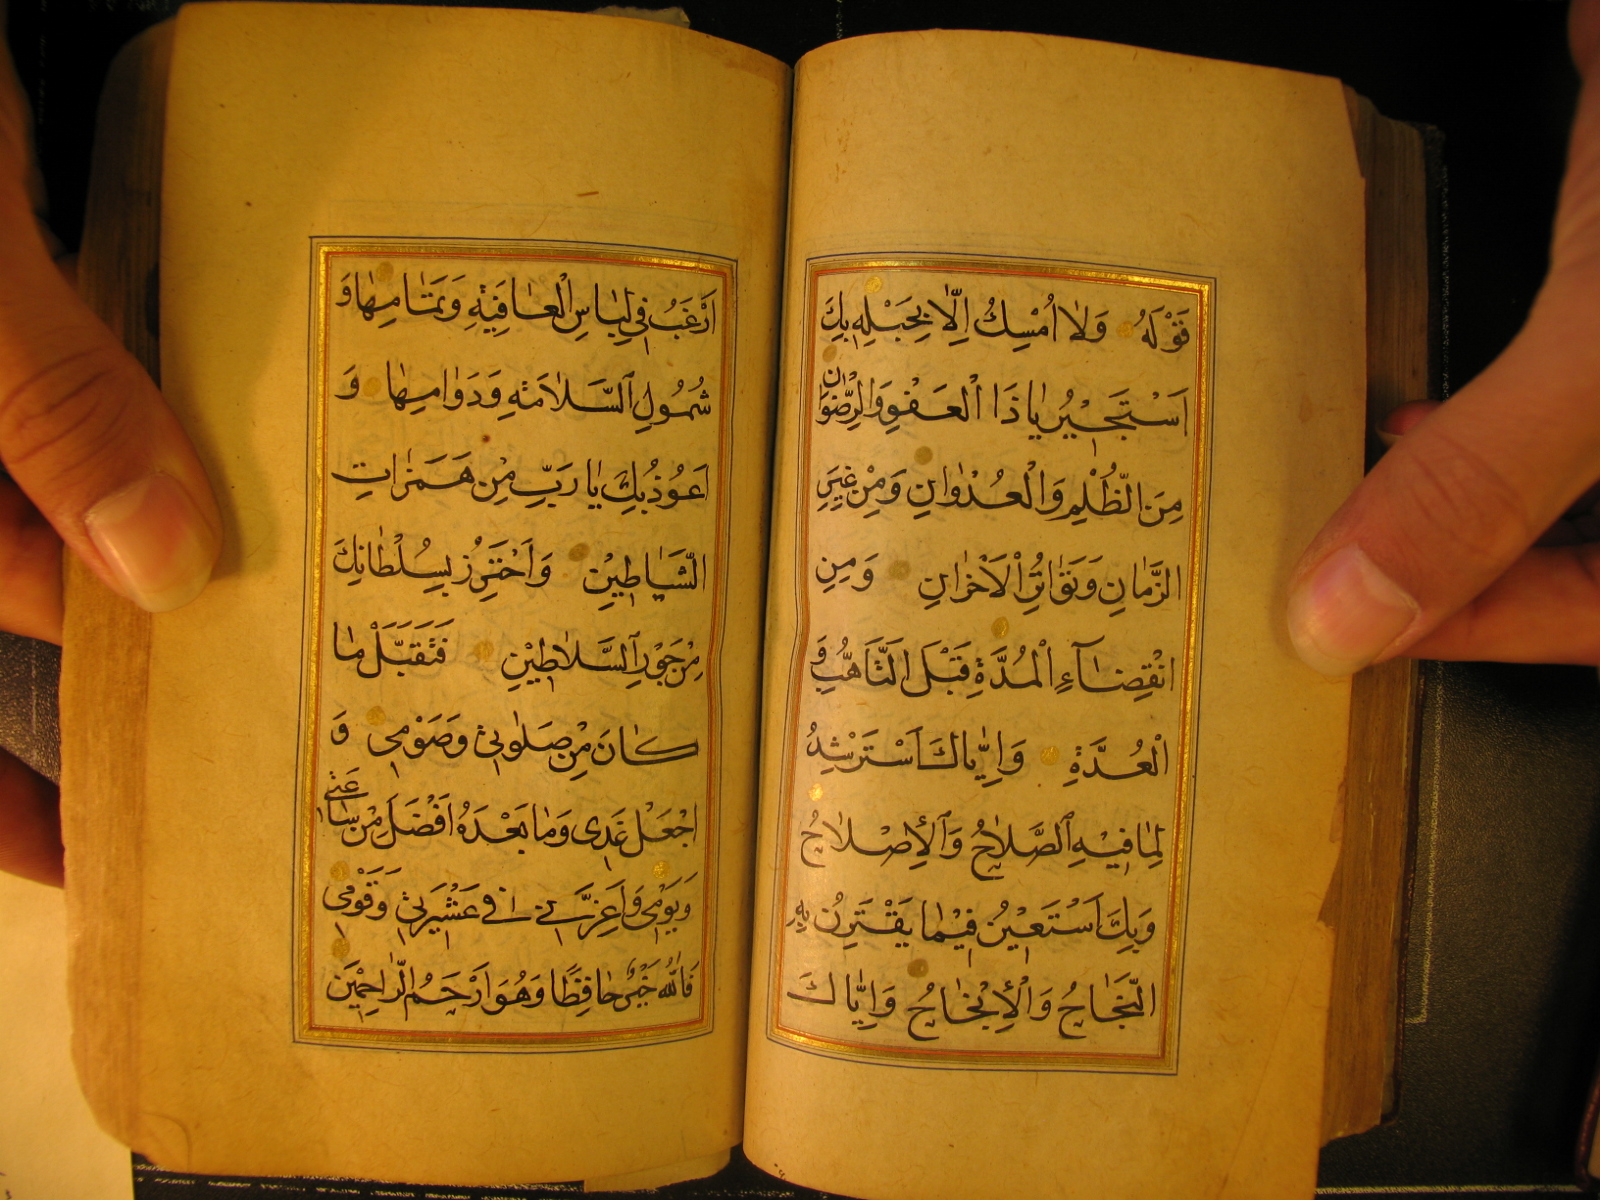 قَوْلَهُ وَلَا اُمْسِكُ اِلَّا بِحَبْلِهِ بِكَ
اَسْتَجيْرُ يَا ذَا الْعَفْوِ وَالرِّضْوَانِ
مِنَ الظُّلْمِ وَالْعُدْوَانِ وَمِنْ غِيَرِ
الزَّمَانِ وَتَوَاتُرِ الْاَحْزَانِ وَمِنِ
انْقِضَآءِ الْمُدَّةِ قَبْلَ التَّاَهُّبِ وَ
الْعُدَّةِ وَاِيَّاكَ اَسْتَرْشِدُ
لِمَا فِيْهِ الصَّلَاحُ وَالْاِصْلَاحُ
وَبِكَ اَسْتَعيْنُ فِيْمَا يَقْتَرِنُ بِهِ
النَّجَاحُ وَالْاِنْجَاحُ وَاِيَّاكَ
اَرْغَبُ فِي لِبَاسِ الْعَافِيَةِ وَتَمَامِهَا وَ
شُمُولِ السَّلَامَةِ وَدَوَامِهَا وَ
اَعُوْذُ بِكَ يَا رَبِّ مِنْ هَمَزَاتِ
الشَّيَاطِيْنِ وَاَحْتَرِزُ بِسُلْطَانِكَ
مِنْ جَوْرِ السَّلَاطِيْنِ فَتَقَبَّلْ مَا
كَانَ مِنْ صَلَوٰتِيْ وَصَوْمِي وَ
اجْعَلْ غَدِي وَمَا بَعْدَهُ اَفْضَلَ مِنْ سَاعَتِي
وَيَوْمِي وَاَعِزَّنِيْ فِي عَشِيْرَتِيْ وَقَوْمِي
فَاللّٰهُ خَيْرٌ حَافِظًا وَهُوَ اَرْحَمُ الرَّاحِمِيْنَ